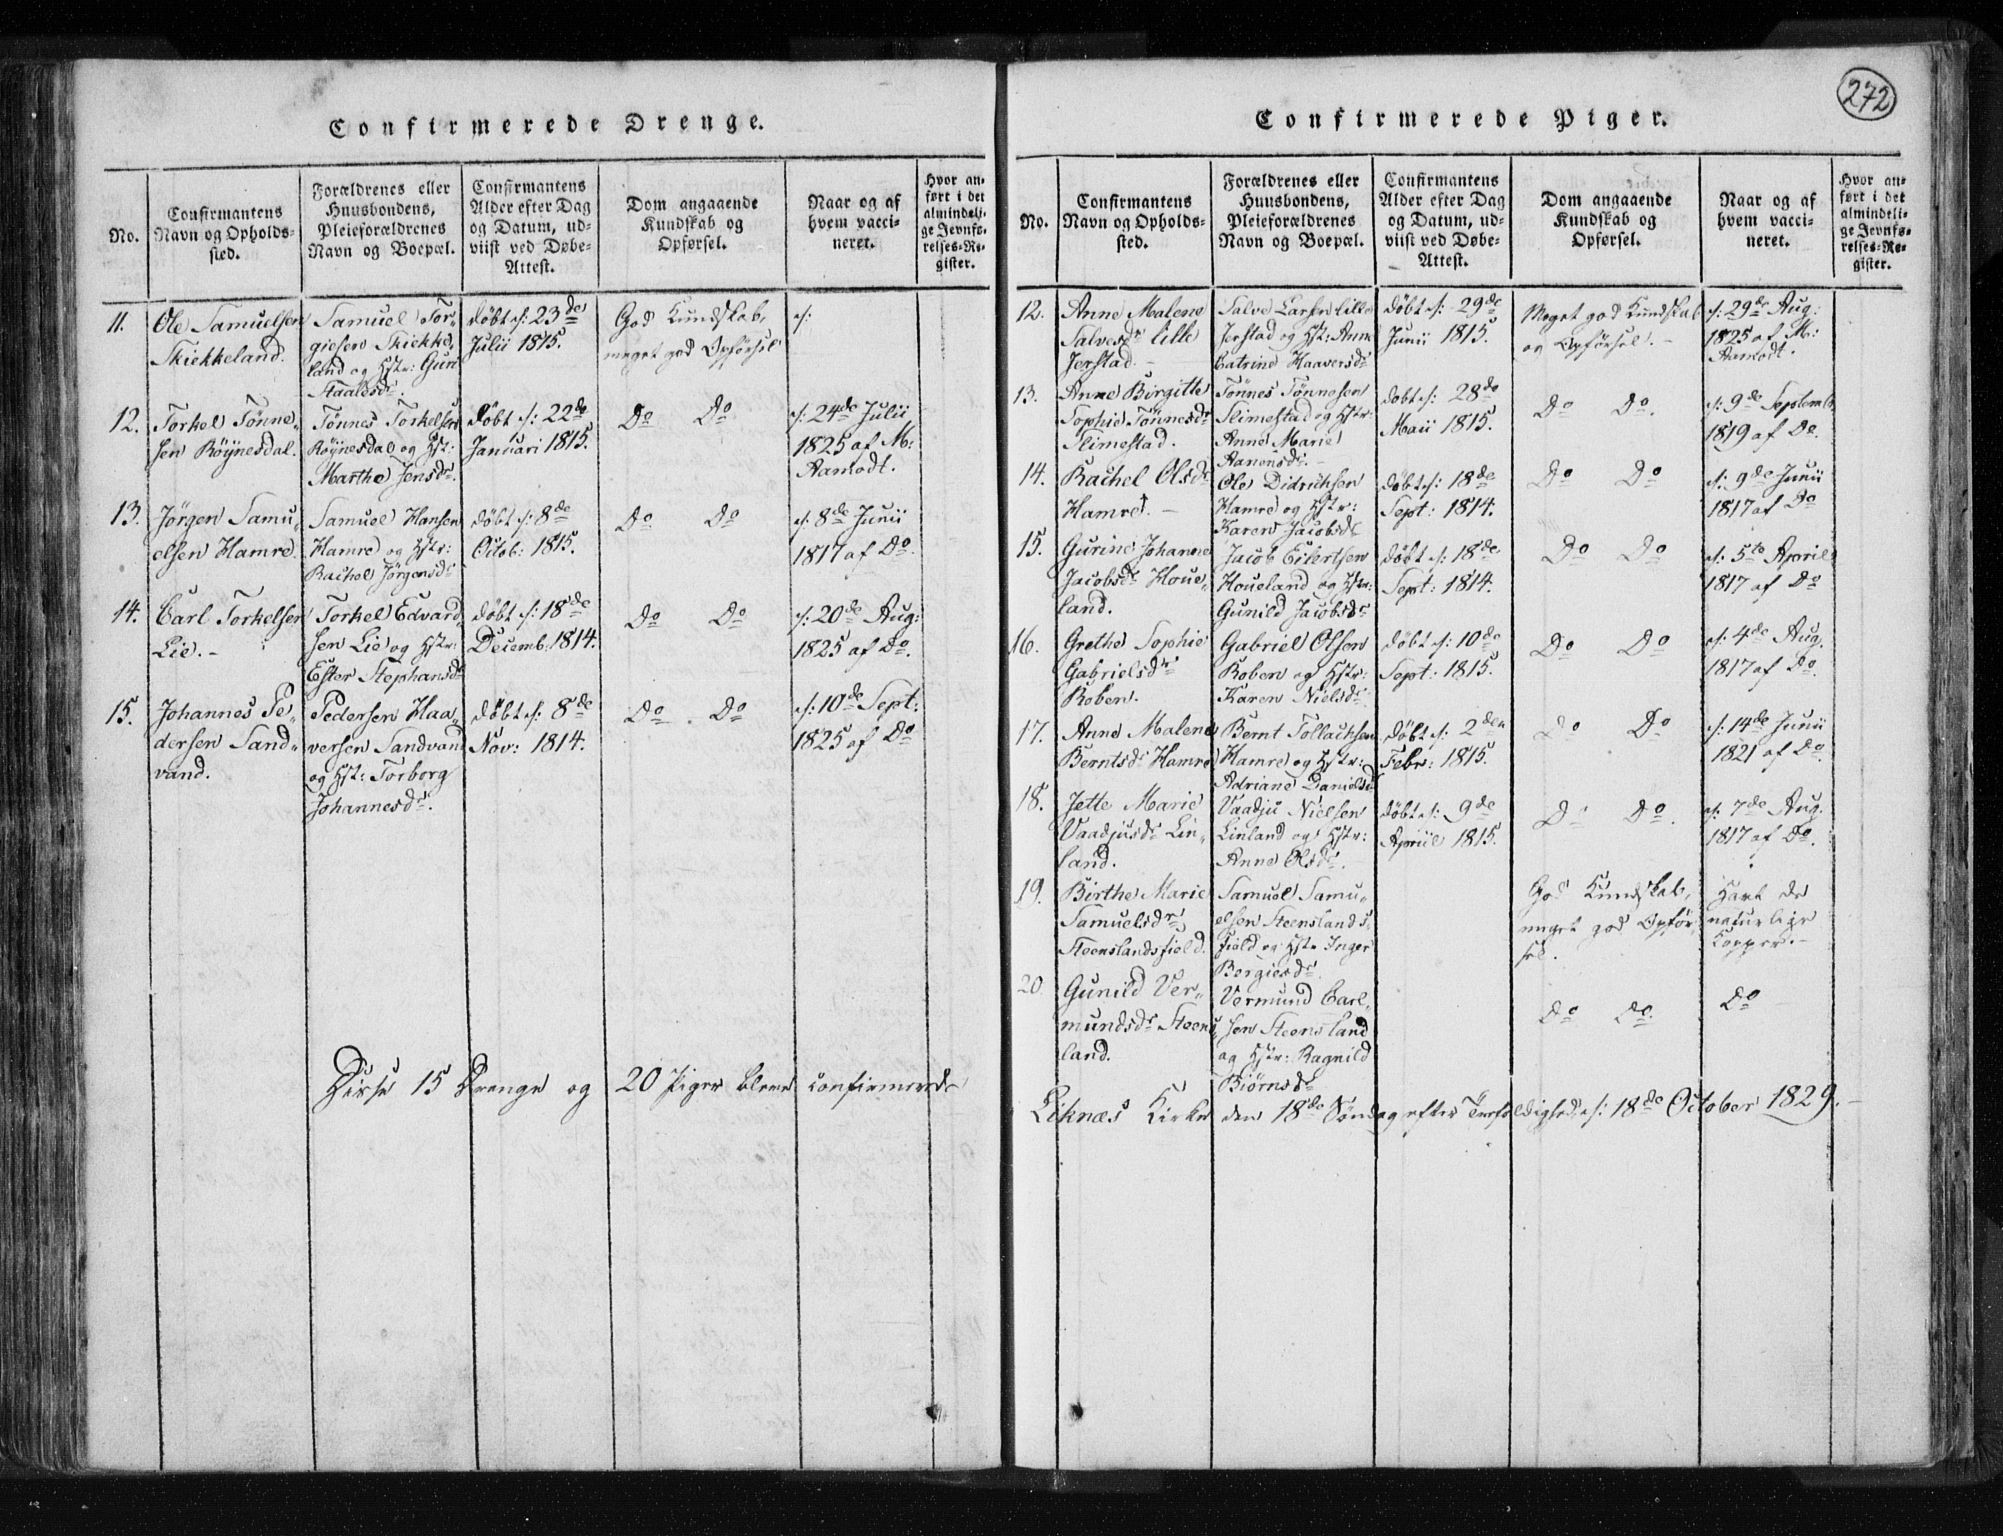 272
Confirmerede Drenge.
No.
Confirmantens
Navn og Opholds-
sted.
Forældrenes eller
Huusbondens,
Pleieforældrenes
Navn og Boepæl.
Confirmantens
Alder efter Dag
og Datum, ud-
viist ved Døbe-
Attest.
Dom angaaende
Kundskab og
Opførsel.
Naar og af
hvem vacci-
neret.
Hvor an-
ført i det
almindeli-
ge Jevnfø-
relses-Re-
gister.
11.
Ole Samuelsen
Skiekkeland.
Samuel Tor-
giesen Skiekke-
land og Hstr: Gun
Staalesdr.
døbt d: 23de
Julii 1815.
God Kundskab,
meget god Opførsel
d:
12.
Torkel Tønne-
sen Röynesdal.
Tönnes Torkelsen
Röynesdal og Hst:
Marthe Jensdr.
døbt d: 22de
Januari 1815.
Do Do
d: 24de Julii
1825 af M:
Aamodt.
13.
Jörgen Samu-
elsen Hamre.
Samuel Hansen
Hamre og Hstr:
Rachel Jörgensdr
døbt d: 8de
Octob: 1815.
Do Do
d: 8de Junii
1817 af Do.
14.
Carl Torkelsen
Lie. -
Torkel Edvard
sen Lie og Hstr:
Ester Stephansdr
døbt d: 18de
Decemb: 1814.
Do Do
d: 20de Aug:
1825 af Do.
15.
Johannes Pe-
dersen Sand-
vand.
Pedersen Haa-
versen Sandvand
og Hst: Torborg
Johannesdr.
døbt d: 8de
Nov: 1814.
Do Do
d: 10de Sept:
1825 af Do
Disse 15 Drenge og 20 Piger bleve confirmerede
Confirmerede Piger.
No.
Confirmantens
Navn og Opholds-
sted.
Forældrenes eller
Huusbondens,
Pleieforældrenes
Navn og Boepæl.
Confirmantens
Alder efter Dag
og Datum, ud-
viist ved Døbe-
Attest.
Dom angaaende
Kundskab og
Opførsel.
Naar og af
hvem vacci-
neret.
Hvor an-
ført i det
almindeli-
ge Jevnfø-
relses-Re-
gister.
12.
Anne Malene
Salvesdr lille
Jerstad. -
Salve Larsen lille
Jerstad og Hst: Anne
Catrine Haaversdr
døbt d: 29de
Junii 1815.
Meget god Kundskab
og Opførsel. -
d: 29de Aug:
1825 af M:
Aamodt.
13.
Anne Birgitte
Sophie Tönnesdr
Slimestad.
Tönnes Tönnesen
Slimestad og Hstr:
Anne Marie
Aanensdr. -
døbt d: 28de
Maii 1815.
Do Do.
d: 9de Septemb:
1819 af Do.
14.
Rachel Olsdr
Hamre. -
Ole Didrichsen
Hamre og Hstr:
Karen Jacobsdr
døbt d: 18de
Sept: 1814.
Do Do
d: 9de Junii
1817 af Do
15.
Gurine Johanne
Jacobsdr Houe-
land.
Jacob Eilertsen
Houeland og Hstr:
Gunild Jacobsdr
døbt d: 18de
Sept: 1814.
Do Do
d: 5te April
1817 af Do
16.
Grethe Sophie
Gabrielsdr
Roben.
Gabriel Olsen
Roben og Hstr:
Karen Nielsdr
døbt d: 10de
Sept: 1815.
Do Do
d: 4de Aug.
1817 af Do.
17.
Anne Malene
Berntsdr Hamre
Bernt Tollachsen
Hamre og Hstr:
Adriane Danielsdr
døbt d: 2den
Febr: 1815.
Do Do
d: 14de Junii
1821 af Do.
18.
Jette Marie
Vaadjusdr Lin-
land.
Vaadju Nielsen
Linland og Hstr:
Anne Olsdr. -
døbt d: 9de
Apriil 1815.
Do Do.
d: 7de Aug.
1817 af Do.
19.
Birthe Marie
Samuelsdr
Steenslandsfield.
Samuel Samu-
elsen Steenslands-
field og Hstr Inger
Bergiesdr.
God Kundskab,
meget god Opfør-
sel.
Havt de
naturlige
Kopper. -
20
Gunild Ver-
mundsdr Steens-
land.
Vermund Carl-
sen Steensland
og Hstr: Ragnild
Biørnsdr
Do Do.
Do
Liknæs Kirke den 18de Søndag efter Trefoldighed d: 18de October 1829. -